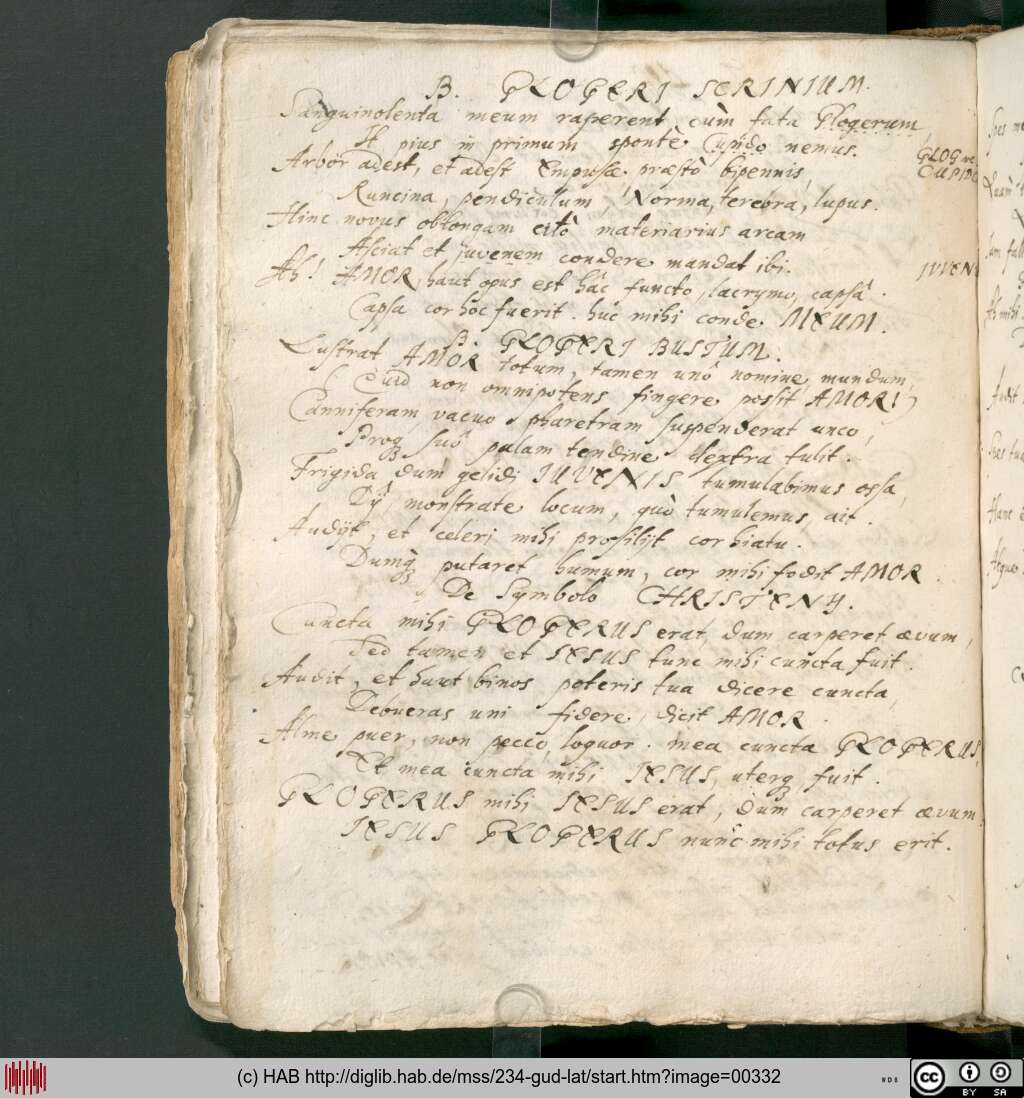 B. GLOGERI SCRINIUM.
Sanguinolenta meum raperent cùm fata Glogerum,
It pius in primum spontè Cupido nemus.
GLOG
CUPIDO
Arbor adest, et adest Empusæ præstò bipennis,
Runcina, pendiculum, Norma, terebra, lupus.
Hinc novus oblongam citò materiarius arcam
Asciat et juvenem condere mandat ibi.
JUVEN
Ah! AMOR, haut opus est hâc functo, lacrymo, capsâ.
Capsa cor hoc fuerit. huc mihi conde MEUM.
B. GLOGERI BUSTUM.
Lustrat AMOR totum, tamen unô nomine, mundum,
(Quid non omnipotens fingere possit AMOR!)
Canniferam vacuo pharetram suspenderat unco,
Proq suô palam tendine dextra tulit.
Frigida dum gelidi JUVENIS tumulabimus ossa,
Dÿ, monstrate locum, quò tumulemus, ait.
Audÿt, et celeri mihi prosilÿt cor hiatu.
Dumq putaret humum, cor mihi fodit AMOR.
De Symbolo CHRISTENII.
Cuncta mihi GLOGERUS erat, dum carperet ævum,
Sed tamen et JESUS tunc mihi cuncta fuit.
Audit, et haut binos poteris tua dicere cuncta,
Deoveras uni fidere, dicit AMOR.
Alme puer, non pecco, loquor. mea cuncta GLOGERUS,
Et mea cuncta mihi JESUS, uterq fuit.
GLOGERUS mihi JESUS erat, dum carperet ævum.
JESUS GLOGERUS nunc mihi totus erit.
(c) HAB http://diglib.hab.de/mss/234-gud-lat/start.htm?image=00332
WDB
cc
BY SA